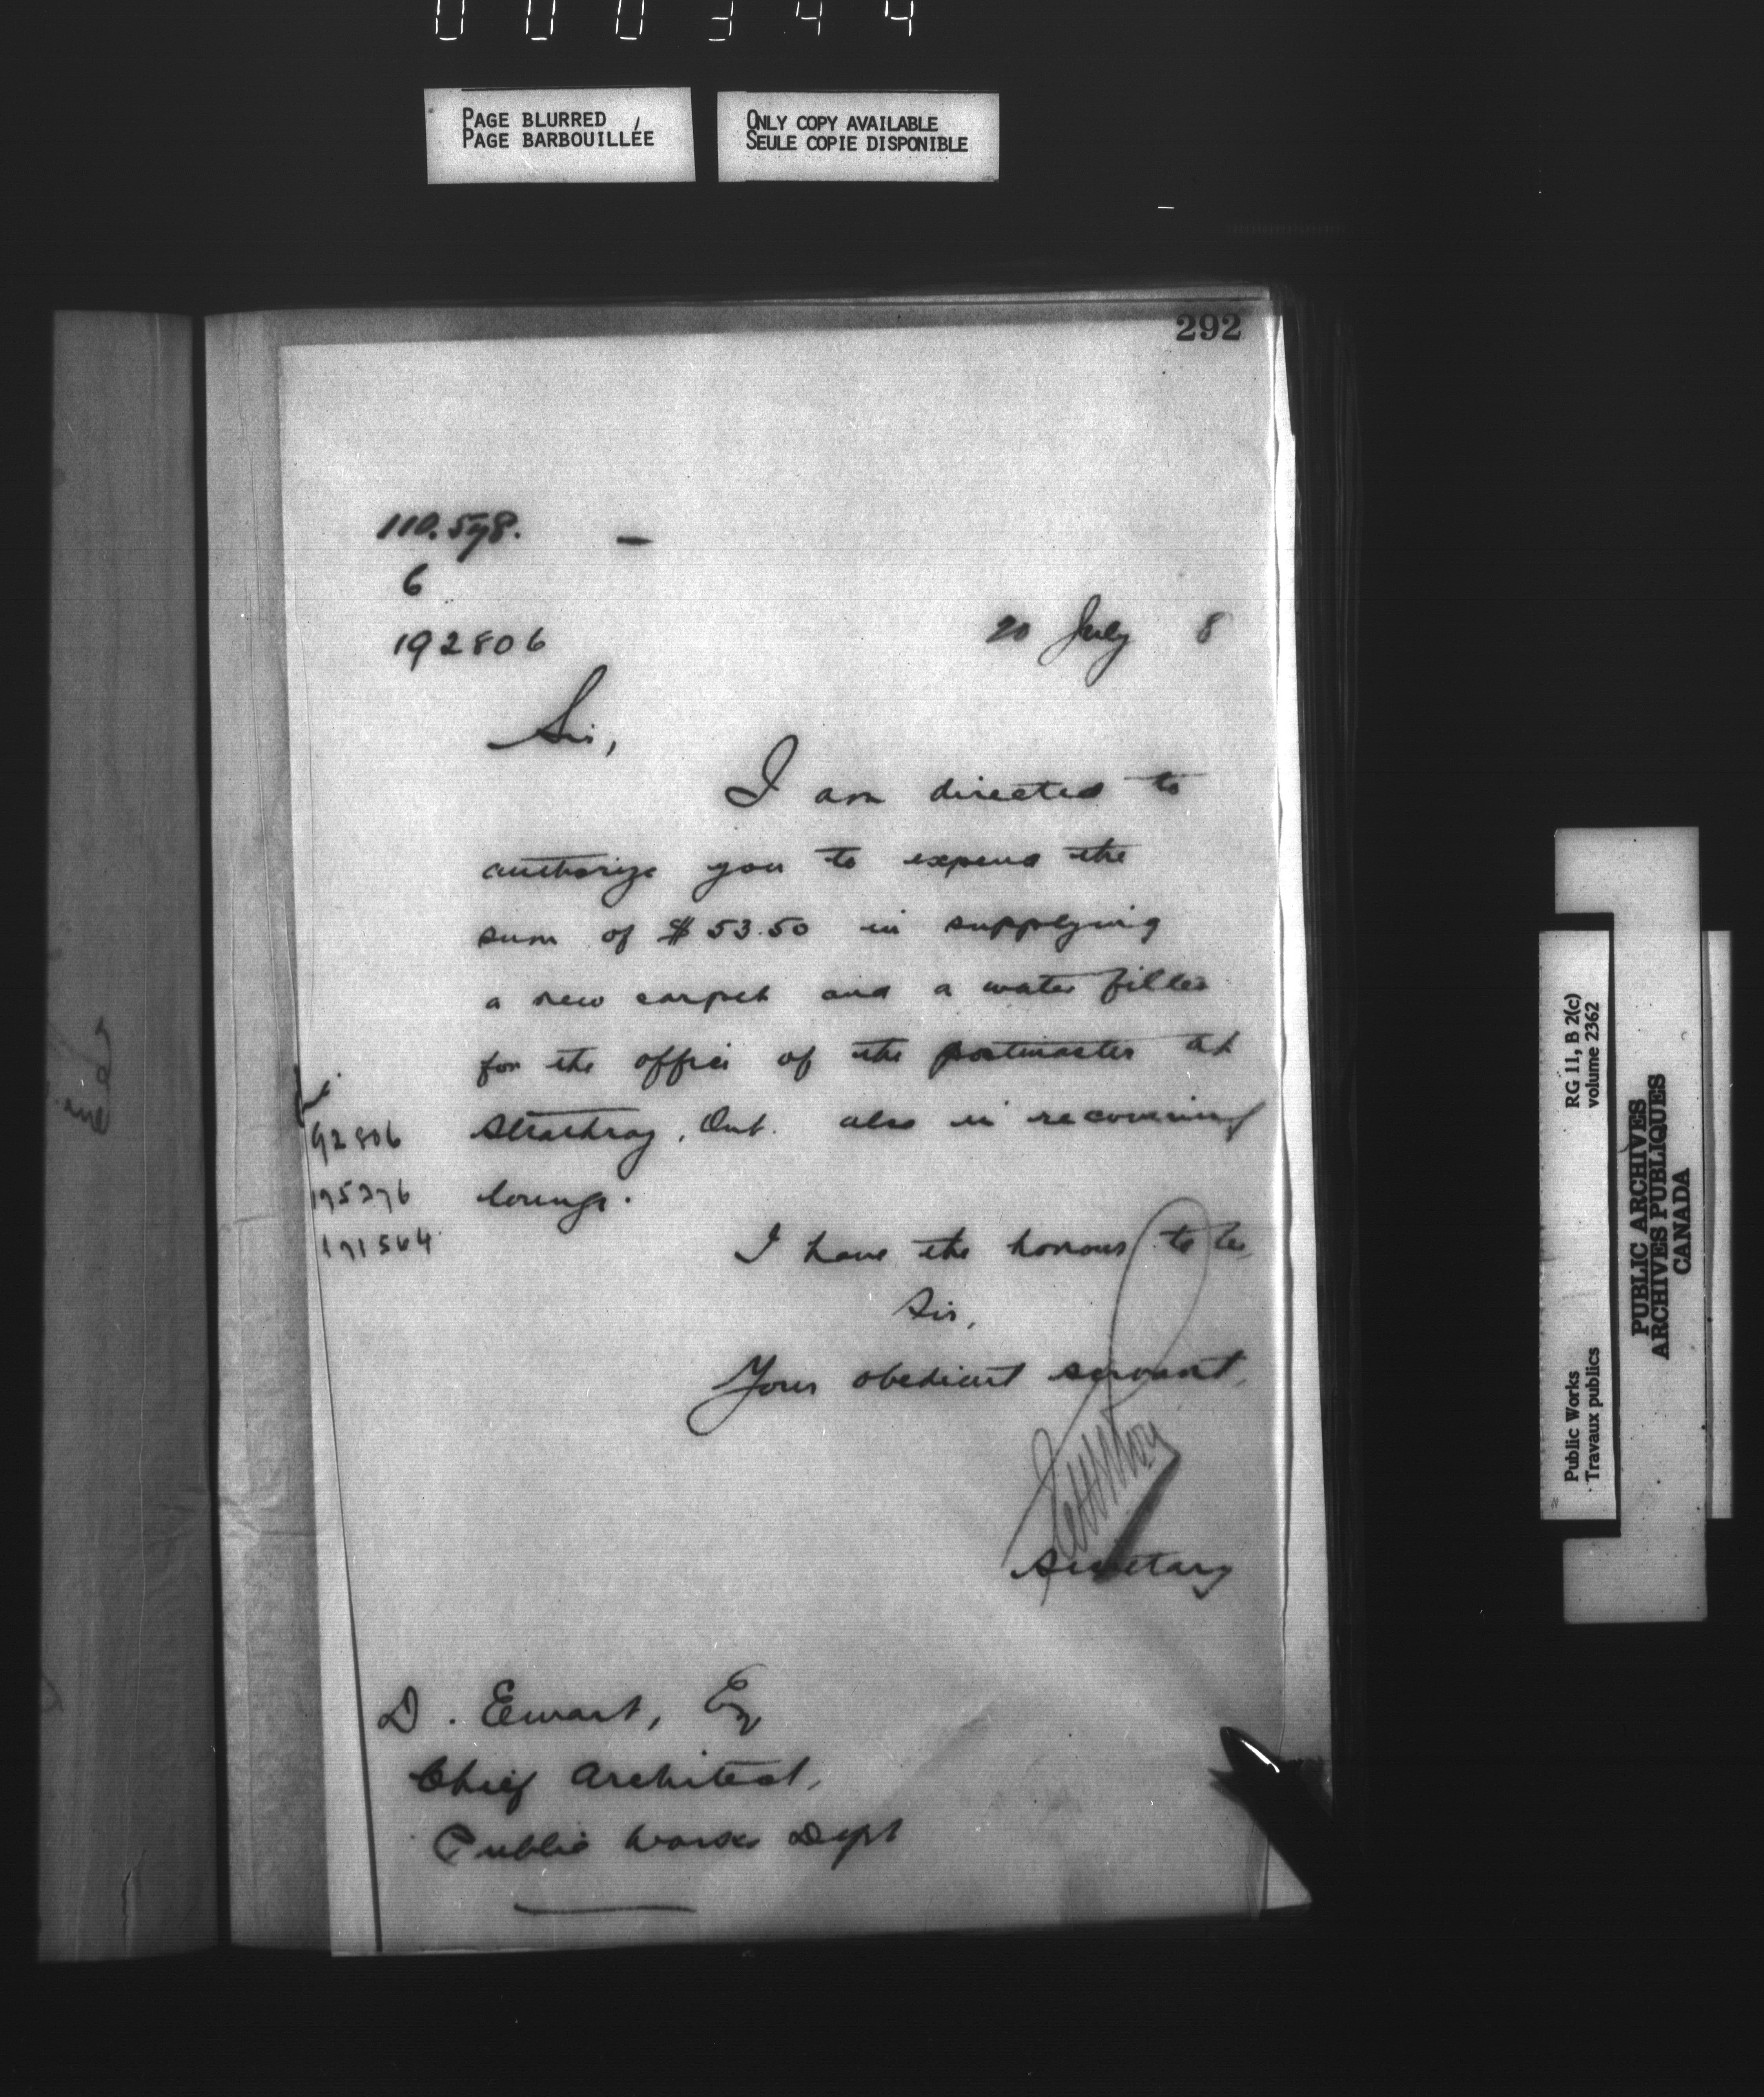 000344
PAGE BLURRED
PAGE BARBOUILLÉE
ONLY COPY AVAILABLE
SEULE COPIE DISPONIBLE
292
110.578.
6
192806
20 July 8
Sir,
I am directed to
authorize you to expend the
sum of $53.50 in supplying
a new carpet and a water filter
for the office of the postmaster at
Strathroy, Ont. also in recovering
lounge.
92806
195276
191564
I have the honour to be
Sir,
Your obedient servant,
Secretary
D. Ewart, Esq
Chief Architect,
Public Works Dept
RG 11, B 2(c)
volume 2362
Public Works
Travaux publics
PUBLIC ARCHIVES
ARCHIVES PUBLIQUES
CANADA